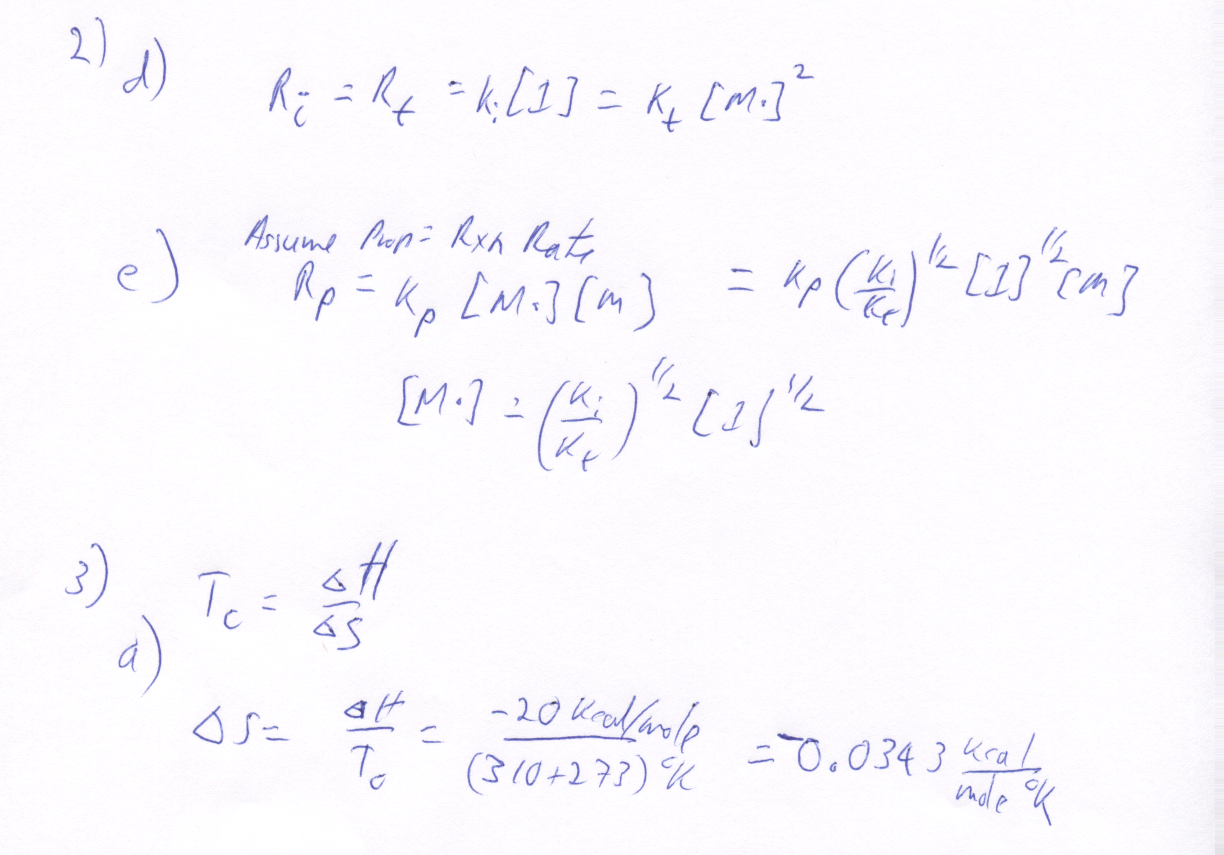 2) d) Rᵢ = R_t = kᵢ[I] = K_t [M·]²
e) Assume Prop = Rxn Rate
R_p = K_p [M·][m] = K_p (Kᵢ/K_t)^1/2 [I]^1/2 [m]
[M·] = (Kᵢ/K_t)^1/2 [I]^1/2
3) T_c = ΔH/ΔS
a)
ΔS = ΔH/T_c = -20 Kcal/mole / (310+273)°K = -0.0343 kcal/mole °K